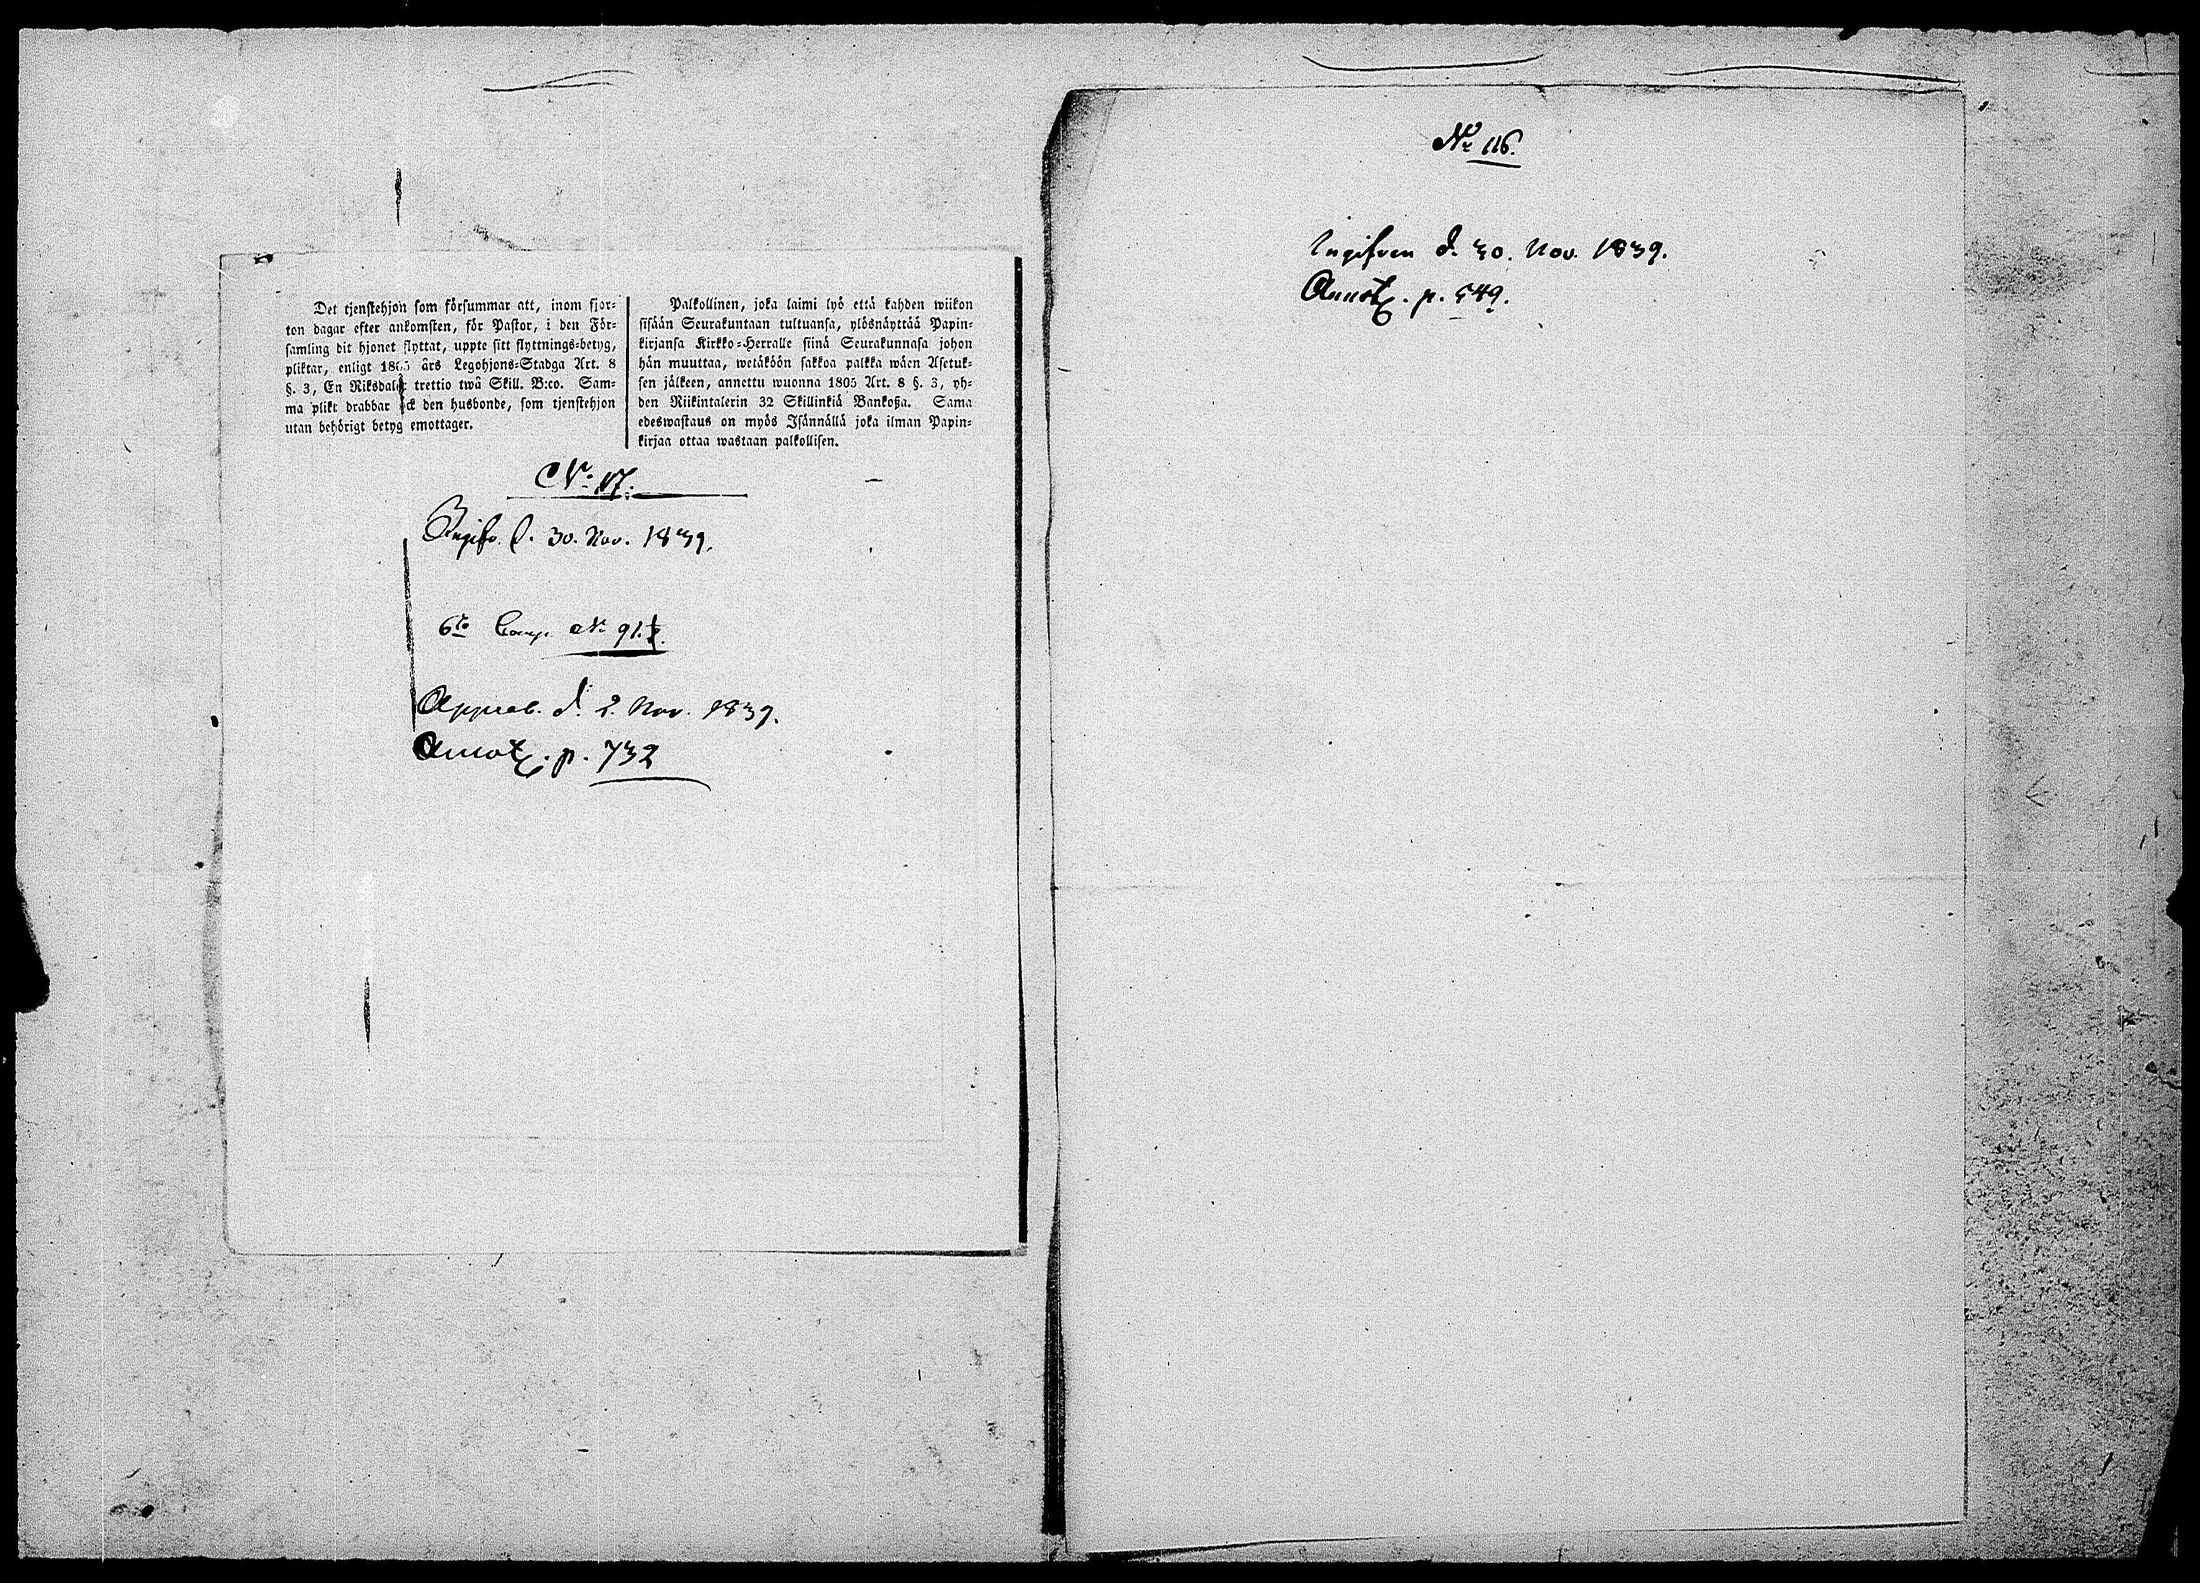 Det tjenstehjon som försummar att, inom fjor-
ton dagar efter ankomsten, för Pastor, i den För-
samling dit hjonet flyttat, uppte sitt flyttnings-betyg,
pliktar, enligt 1805 års Legohjons-Stadga Art. 8
§. 3, En Riksdaler trettio twå Skill. B:co. Sam-
ma plikt drabbar ock den husbonde, som tjenstehjon
utan behörigt betyg emottager.
Palkollinen, joka laimi lyö että kahden wiikon
sisään Seurakuntaan tultuansa, ylösnäyttää Papin-
kirjansa Kirkko-Herralle siinä Seurakunnasa johon
hän muuttaa, wetäköön sakkoa palkka wäen Asetuk-
sen jälkeen, annettu wuonna 1805 Art. 8 §. 3, yh-
den Riikintalerin 32 Skillinkiä Bankoßa. Sama
edeswastaus on myös Isännällä joka ilman Papin-
kirjaa ottaa wastaan palkollisen.
No 117.
Ingifv. d. 30. Nov. 1839.
6te Comp. No 91.
Approb. d. 2. Nov. 1839.
Annot. p. 732
No 116.
Ingifven d. 30. Nov. 1839.
Annot. p. 549.